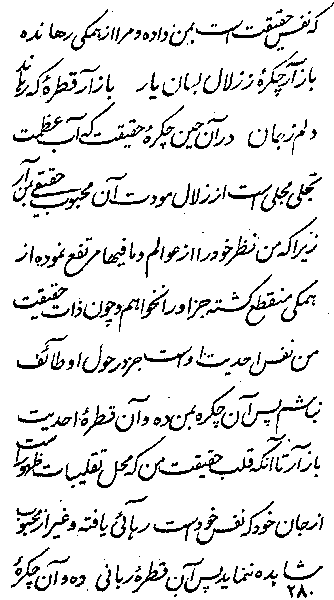 که نفس حقیقت است بمن داده و مرا از همگی رهانده
باز آر چکرهٔ ز زلال لسان یار باز آر قطرهٔ که رهاند
دلم ز جان در آن حین چکرهٔ حقیقت که آب عظمت
تجلی مجلی است از زلال مودت آن محبوب حقیقی بمن آر
زیرا که من نظر خود را از عوالم و ما فیها مرتفع نموده از
همگی منقطع گشته جز او را نخواهم و چون ذات حقیقت
من نفس احدیت اوست جز در حول او طائف
نباشم پس آن چکره بمن ده و آن قطرهٔ احدیت
باز آر تا آنکه قلب حقیقت من که محل تقلیبات ظهور است
از جان خود که نفس خود است رهائی یافته و غیر از محبوب
مشاهده ننماید پس آن قطرهٔ ربانی ده و آن چکرهٔ
۲۸۰